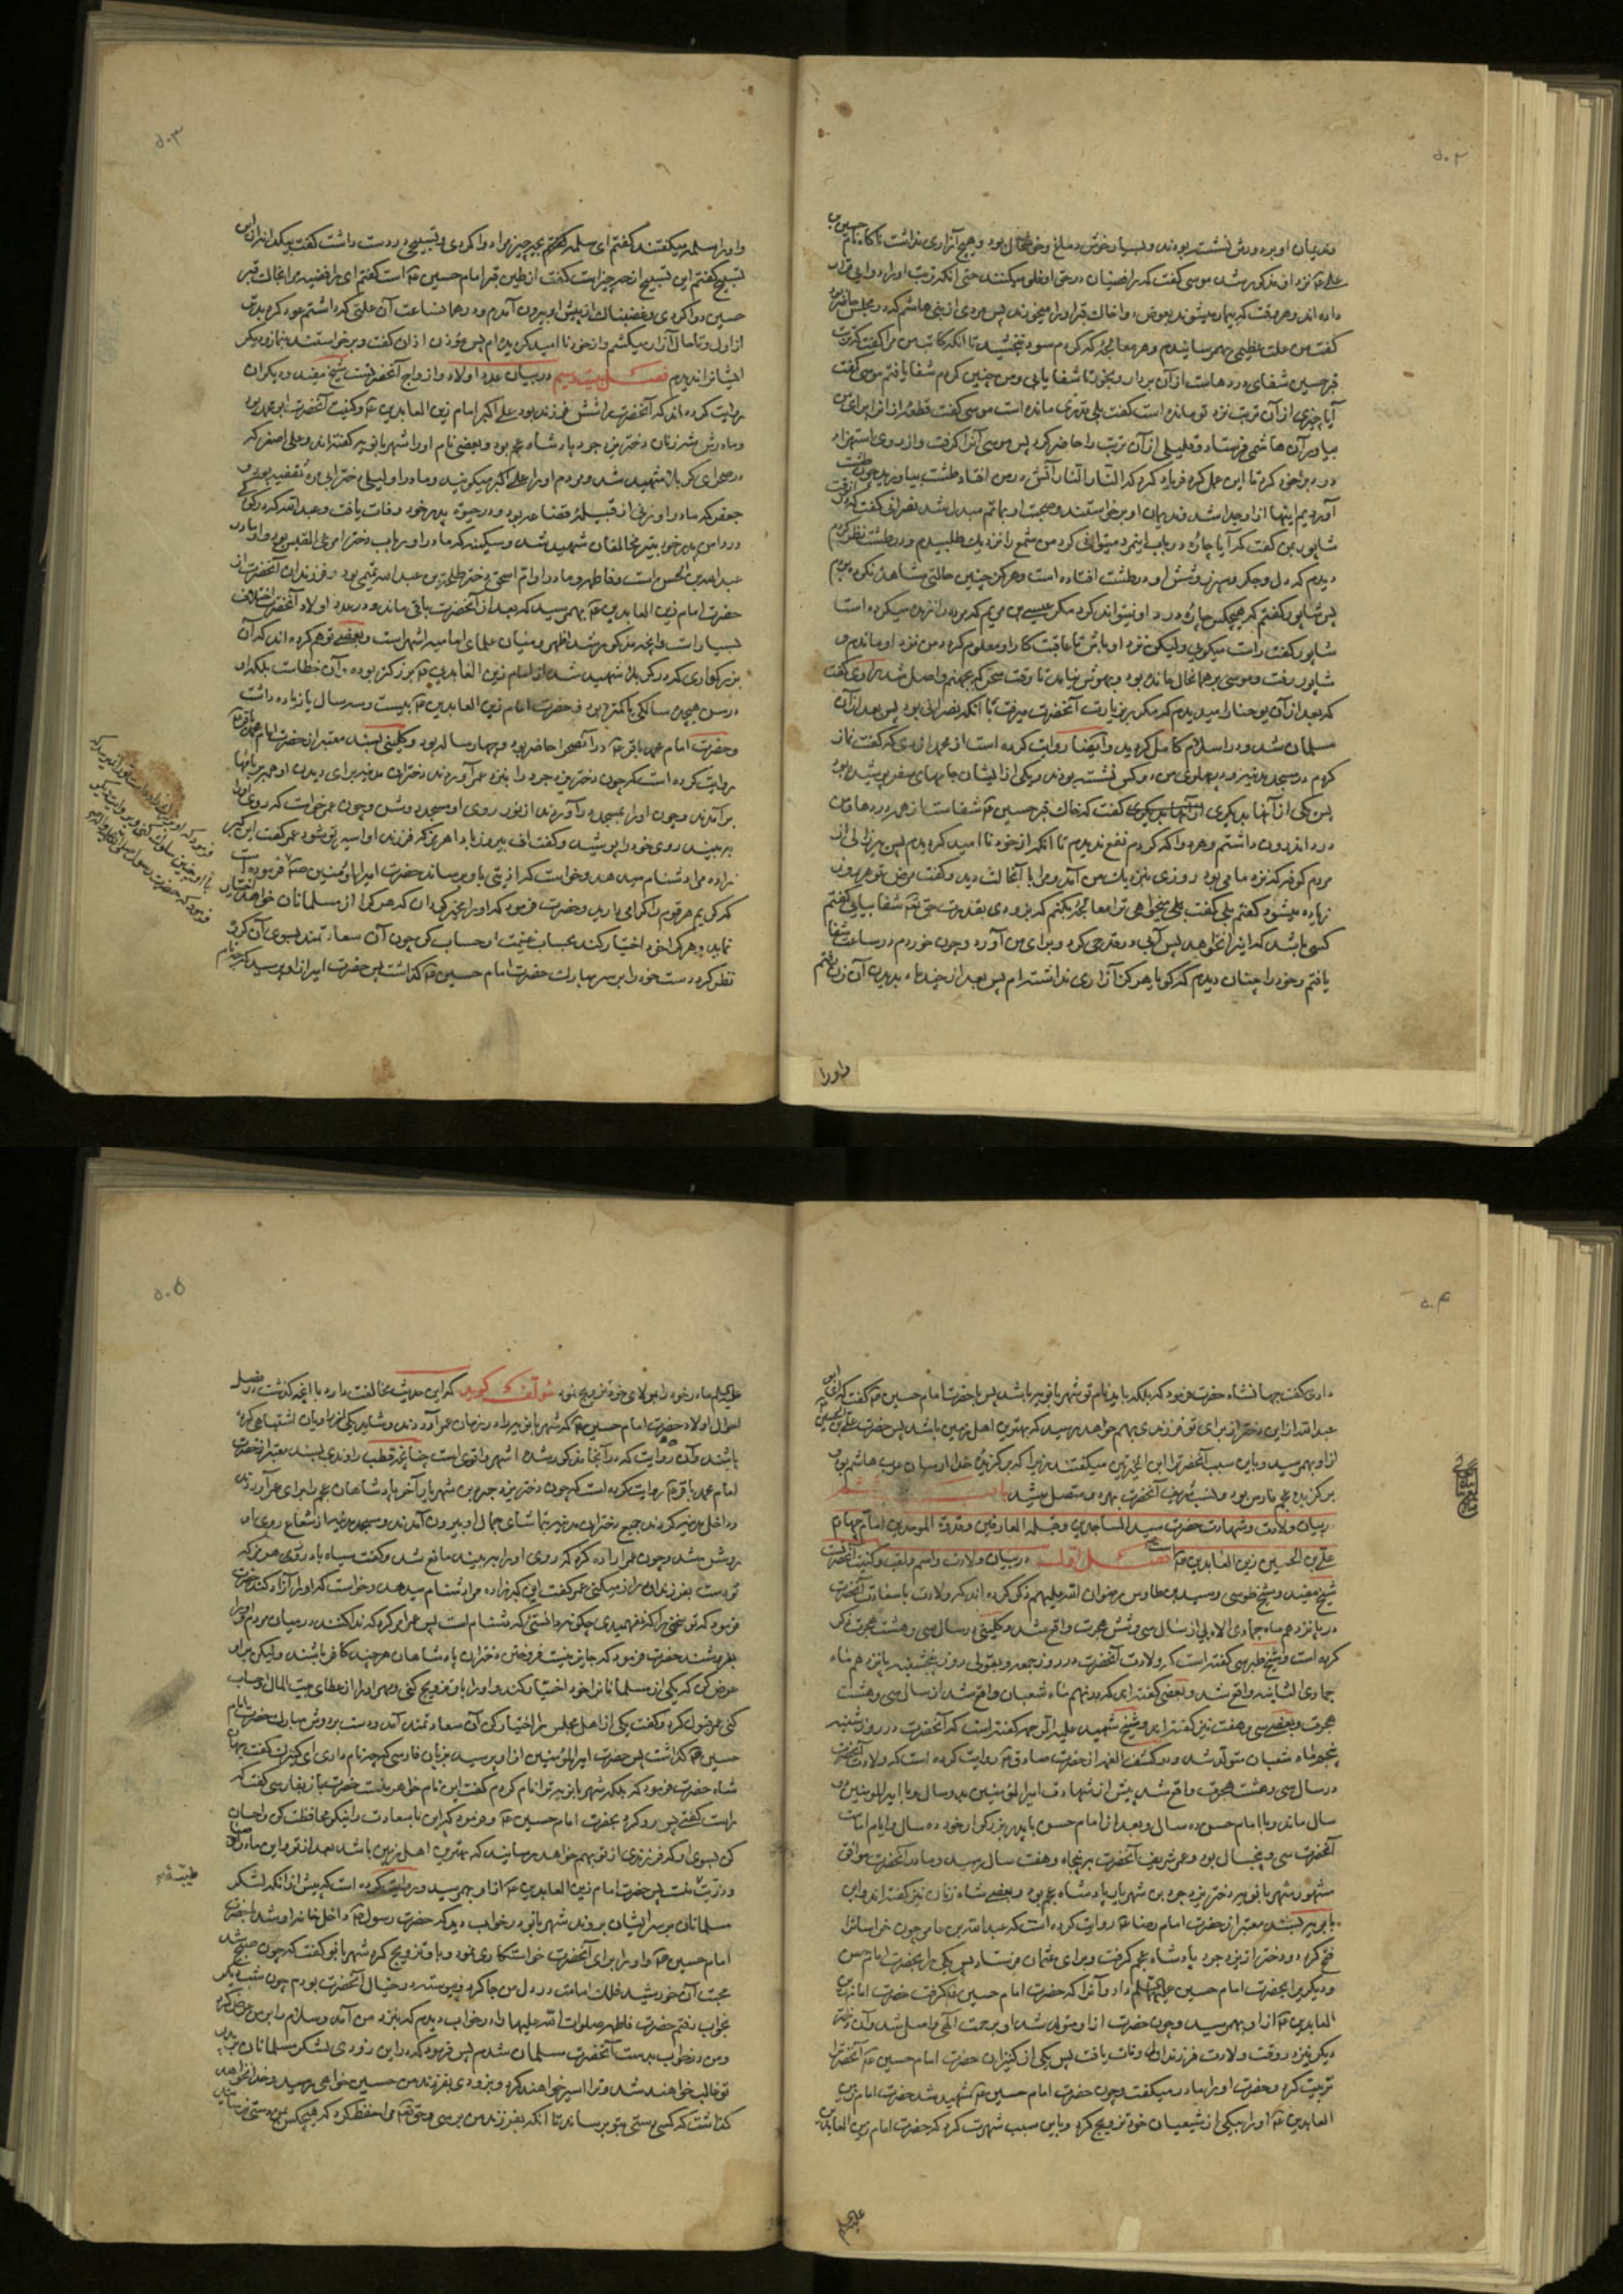 ۵۰۲
ندیمان او بر دورش نشسته بودند و بسیار خوش دماغ و خوشحال بود و هیچ آزاری نداشت ناگاه نام حسین بن
علی ع نزد او مذکور شد موسی گفت که رافضیان در حق او غلو میکنند حتی آنکه تربت او را دوای قرار
داده اند و هر وقت که بیمار میشوند بعوض دوا خاک قبر او را میخورند پس مردی از بنی هاشم که در مجلس حاضر بود
گفت من علت عظیمی بهم رسانیدم و هر معالجه که کردم سود نبخشید تا آنکه کاتب من مرا گفت که تربت
قبر حسین شفای دردهاست از آن بردار و بخور تا شفا یابی و من چنین کردم شفا یافتم موسی گفت
آیا چیزی از آن تربت نزد تو مانده است گفت بلی قدری مانده است موسی گفت قطعه از آن برای من
بیاور آن هاشمی فرستاد و قلیلی از آن تربت را حاضر کرد پس موسی آنرا گرفت و از روی استهزاء
در دبر خود کرد تا این عمل کرد فریاد کرد که النار النار آتش در من افتاد طشت بیاورید چون طشت
آوردیم اینها از او جدا شد ندیمان او برخواستند و صحبت او بماتم مبدل شد نصرانی گفت که در آنوقت
شاپور بمن گفت که آیا چاره در باب این مرد میتوانی کرد من شمع را نزدیک طلبیدم و در طشت نظر کردم
دیدم که دل و جگر و سپرز و شش او در طشت افتاده است و هرگز چنین حالتی مشاهده نکرده بودم
پس شاپور گفتم که هیچکس چاره درد او نتواند کرد مگر عیسی بن مریم که مرده را زنده میکرده است
شاپور گفت راست میگویی ولیکن نزد او باش تا عاقبت کار او معلوم گردد من نزد او ماندم و
شاپور رفت و موسی بر همان حال مانده بود و بهوش نیامد تا وقت سحر که بجهنم واصل شد راوی گفت
که بعد از آن یوحنا را میدیدم که مکرر بزیارت آنحضرت میرفت با آنکه نصرانی بود پس بعد از آن
مسلمان شد و در اسلام کامل گردید و ایضا روایت کرده است از محمد ازدی که گفت نماز
کردم در مسجد مدینه و در پهلوی من دو کس نشسته بودند و یکی از ایشان جامهای سفر پوشیده بود
پس یکی از آنها بدیگری گفت که خاک قبر حسین ع شفاست از همه دردها و من
درد اندرون داشتم و هر دوا که کردم نفع ندیدم تا آنکه از خود نا امید گردیدم پس پیرزالی از
مردم کوفه که نزد ما می بود روزی نزدیک من آمد و مرا بآنحالت دید و گفت مرض تو هر روز
زیاده میشود گفتم بلی گفت میخواهی ترا معالجه بکنم که بزودی بقدرت حق تع شفا بیابی گفتم
کسی باشد که اینرا نخواهد پس آبی در قدحی کرد و برای من آورد و چون خوردم در ساعت شفا
یافتم و خود را چنان دیدم که گویا هرگز آزاری نداشته ام پس بعد از چند ماه بدیدن آن زن رفتم
و او را
۵۰۳
و او را سلمه میگفتند گفتم ای سلمه بچه چیز مرا دوا کردی و تسبیحی در دست داشت گفت بیکدانه از این
تسبیح گفتم این تسبیح از چه چیز است گفت از طین قبر امام حسین ع است گفتم ای رافضیه مرا بخاک قبر
حسین دوا کردی و غضبناک از پیش او بیرون آمدم و در همانساعت آن علتی که داشتم عود کرد بدتر
از اول و تا حال آزار میکشم و از خود نا امید گردیده ام پس مؤذن اذان گفت و برخواستند بنماز و دیگر
ایشانرا ندیدم فصل بیستم در بیان عدد اولاد و ازواج آنحضرتست شیخ مفید و دیگران
روایت کرده اند که آنحضرت را شش فرزند بود علی اکبر امام زین العابدین ع و کنیت آنحضرت ابو محمد بود
و مادرش شه زنان دختر یزدجرد پادشاه عجم بود و بعضی نام او را شهربانویه گفته اند و علی اصغر که
در صحرای کربلا شهید شد و مردم او را علی اکبر میگویند و مادر او لیلی دختر ابی مره ثقفیه بود و
جعفر که مادر او زنی از قبیله قضاعه بود و در حیوة پدر خود وفات یافت و عبد الله که در کودکی
در دامن پدر خود بتیر مخالفان شهید شد و سکینه که مادر او رباب دختر امرئ القیس بود و او مادر
عبدالله بن الحسن است و فاطمه و مادر او ام اسحق دختر طلحة بن عبد الله تیمی بود و فرزندان آنحضرت از
حضرت امام زین العابدین ع بهم رسید که بعد از آنحضرت باقی ماند و در عدد اولاد آنحضرت اختلاف
بسیار است و آنچه مذکور شد اظهر و میان علمای امامیه اشهر است و بعضی توهم کرده اند که آن
بزرگواری که در کربلا شهید شد از امام زین العابدین ع بزرگتر بوده و آن خطاست بلکه او
در سن هیجده سالگی یا کمتر بود و حضرت امام زین العابدین ع بیست و سه سال یا زیاده داشت
و حضرت امام محمد باقر ع در آنصحرا حاضر بود و چهار ساله بود و کلینی بسند معتبر از حضرت امام محمد باقر ع
روایت کرده است که چون دختر یزدجرد را بنزد عمر آوردند دختران مدینه برای دیدن او همه بر بامها
برآمدند و چون او را بمسجد درآوردند از نور روی او مسجد روشن و چون عمر خواست که روی او را
ببیند روی خود را پوشید و گفت اف بیروز باد هرمز که فرزند او اسیر تو شود عمر گفت این گبر
زاده مرا دشنام میدهد و خواست که اذیتی باو برساند حضرت امیر المؤمنین ص فرموده است
که کریم هر قوم را گرامی دارید و حضرت فرمود که او را مخیر گردان که هر کرا از مسلمانان خواهد اختیار
نماید و هر که را خود اختیار کند بحساب غنیمت او حساب کن چون آن سعادتمند بسوی آن گروه
نظر کرد دست خود را بر سر مبارک حضرت امام حسین ع گذاشت پس حضرت امیر از او پرسید که چه نام
۵۰۴
داری گفت جهانشاه حضرت فرمود که بلکه باید نام تو شهربانویه باشد پس با حضرت امام حسین ع گفت که ای ابو
عبد الله از این دختر از برای تو فرزندی بهم خواهد رسید که بهترین اهل زمین باشد پس حضرت علی بن الحسین ع
از او بهم رسید و باین سبب آنحضرت را ابن الخیرتین میگفتند زیرا که برگزیده خدا از میان عرب هاشم بود و
برگزیده عجم فارس بود و نسب شریف آنحضرت بهر دو متصل میشد
در بیان ولادت و شهادت حضرت سید الساجدین و قبلة العارفین و قدوة الموحدین امام چهارم
علی بن الحسین زین العابدین ع فصل اول در بیان ولادت و اسم و لقب و کنیت آنحضرت است
شیخ مفید و شیخ طوسی و سید بن طاوس رضوان الله علیهم ذکر کرده اند که ولادت با سعادت آنحضرت
در پانزدهم ماه جمادی الاولی از سال سی و شش هجرت واقع شد و کلینی در سال سی و هشت هجرت ذکر
کرده است و شیخ طبرسی گفته است که ولادت آنحضرت در روز جمعه و بقولی روز پنجشنبه پانزدهم ماه
جمادی الثانیه واقع شد و بعضی گفته اند که در نهم ماه شعبان واقع شد از سال سی و هشت
هجرت و بعضی سی و هفت نیز گفته اند و شیخ شهید علیه الرحمه گفته است که آنحضرت در روز یکشنبه
پنجم ماه شعبان متولد شد و در کشف الغمه از حضرت صادق ع روایت کرده است که ولادت آنحضرت
در سال سی و هشت هجرت واقع شد پیش از شهادت امیر المؤمنین بدو سال و با امیر المؤمنین دو
سال ماند و با امام حسن ده سال و بعد از امام حسن با پدر بزرگوار خود ده سال و ایام امامت
آنحضرت سی و پنجسال بود و عمر شریف آنحضرت بپنجاه و هفت سال رسید و مادر آنحضرت موافق
مشهور شهربانویه دختر یزدجرد بن شهریار پادشاه عجم بود و بعضی شاه زنان نیز گفته اند و ابن
بابویه بسند معتبر از حضرت امام رضا ع روایت کرده است که عبد الله بن عامر چون خراسانرا
فتح کرد دو دختر از یزدجرد پادشاه عجم گرفت و برای عثمان فرستاد پس یکی را بحضرت امام حسن
و دیگری را بحضرت امام حسین علیهما السلام داد و آنرا که حضرت امام حسین ع گرفت حضرت امام زین
العابدین ع از او بهم رسید و چون حضرت از او متولد شد او برحمت الهی واصل شد و آن دختر
دیگر نیز در وقت ولادت فرزند اول وفات یافت پس یکی از کنیزان حضرت امام حسین ع آنحضرت را
تربیت کرد و حضرت او را مادر میگفت و چون حضرت امام حسین ع شهید شد حضرت امام زین
العابدین ع او را بیکی از شیعیان خود تزویج کرد و باین سبب شهرت کرد که حضرت امام زین العابدین
علیه السلام
۵۰۵
علیه السلام مادر خود را بمولای خود تزویج نمود مؤلف گوید که این حدیث مخالفت دارد با آنچه گذشت در فصل
احوال اولاد حضرت امام حسین ع که شهربانویه را در زمان عمر آوردند و شاید یکی از راویان اشتباهی کرده
باشد و آن روایت که در آنجا مذکور شد اشهر و اقوی است چنانچه قطب راوندی بسند معتبر از حضرت
امام محمد باقر ع روایت کرده است که چون دختر یزدجرد بن شهریار آخر پادشاهان عجم را برای عمر آوردند
و داخل مدینه کردند جمیع دختران مدینه بتماشای جمال او بیرون آمدند و مسجد مدینه از شعاع روی او
روشن شد و چون عمر اراده کرد که روی او را ببیند مانع شد و گفت سیاه باد روز هرمز که
تو دست بفرزند او دراز میکنی عمر گفت این گبرزاده مرا دشنام میدهد و خواست که او را آزار کند حضرت
فرمود که تو سخنی را که نفهمیدی چگونه دانستی که دشنام است پس عمر امر کرد که ندا کنند در میان مردم و او را
بفروشند حضرت فرمود که جایز نیست فروختن دختران پادشاهان هر چند کافر باشند ولیکن بر او
عرض کن که یکی از مسلمانانرا خود اختیار کند و او را باو تزویج کنی و مهر او را از عطای بیت المال او حساب
کنی عمر قبول کرد و گفت یکی از اهل مجلس را اختیار کن آن سعادتمند آمد و دست بر دوش مبارک حضرت امام
حسین ع گذاشت پس حضرت امیر المؤمنین از او پرسید بزبان فارسی که چه نام داری ای کنیزک گفت جهان
شاه حضرت فرمود که بلکه شهربانویه ترا نام کردم گفت این نام خواهر منست حضرت باز بفارسی گفت که
راست گفتی پس رو کرد بحضرت امام حسین ع و فرمود که این باسعادت را نیکو محافظت کن و احسان
کن بسوی او که فرزندی از تو بهم خواهد رسانید که بهترین اهل زمین باشد بعد از تو و این مادر اوصیای
و ذریت منست پس حضرت امام زین العابدین ع از او بهم رسید و روایت کرده است که پیش از آنکه لشکر
طیبه
مسلمانان بر سر ایشان بروند شهربانو در خواب دید که حضرت رسول ص داخل خانه او شد با حضرت
امام حسین ع و او را برای آنحضرت خواستگاری نمود و باو تزویج کرد شهربانو گفت که چون صبح شد
محبت آن خورشید فلک امامت در دل من جا کرد و پیوسته در خیال آنحضرت بودم چون شب دیگر
بخواب رفتم حضرت فاطمه صلوات الله علیها را در خواب دیدم که بنزد من آمد و اسلام را بر من عرض کرد
و من در خواب بدست آنحضرت مسلمان شدم پس فرمود که در این زودی لشکر مسلمانان بر پدر
تو غالب خواهند شد و ترا اسیر خواهند کرد و بزودی بفرزند من حسین خواهی رسید و خدا نخواهد
گذاشت که کسی دستی بتو برساند تا آنکه بفرزند من برسی و حق تع مرا حفظ کرد که هیچکس بمن دستی نرسانید